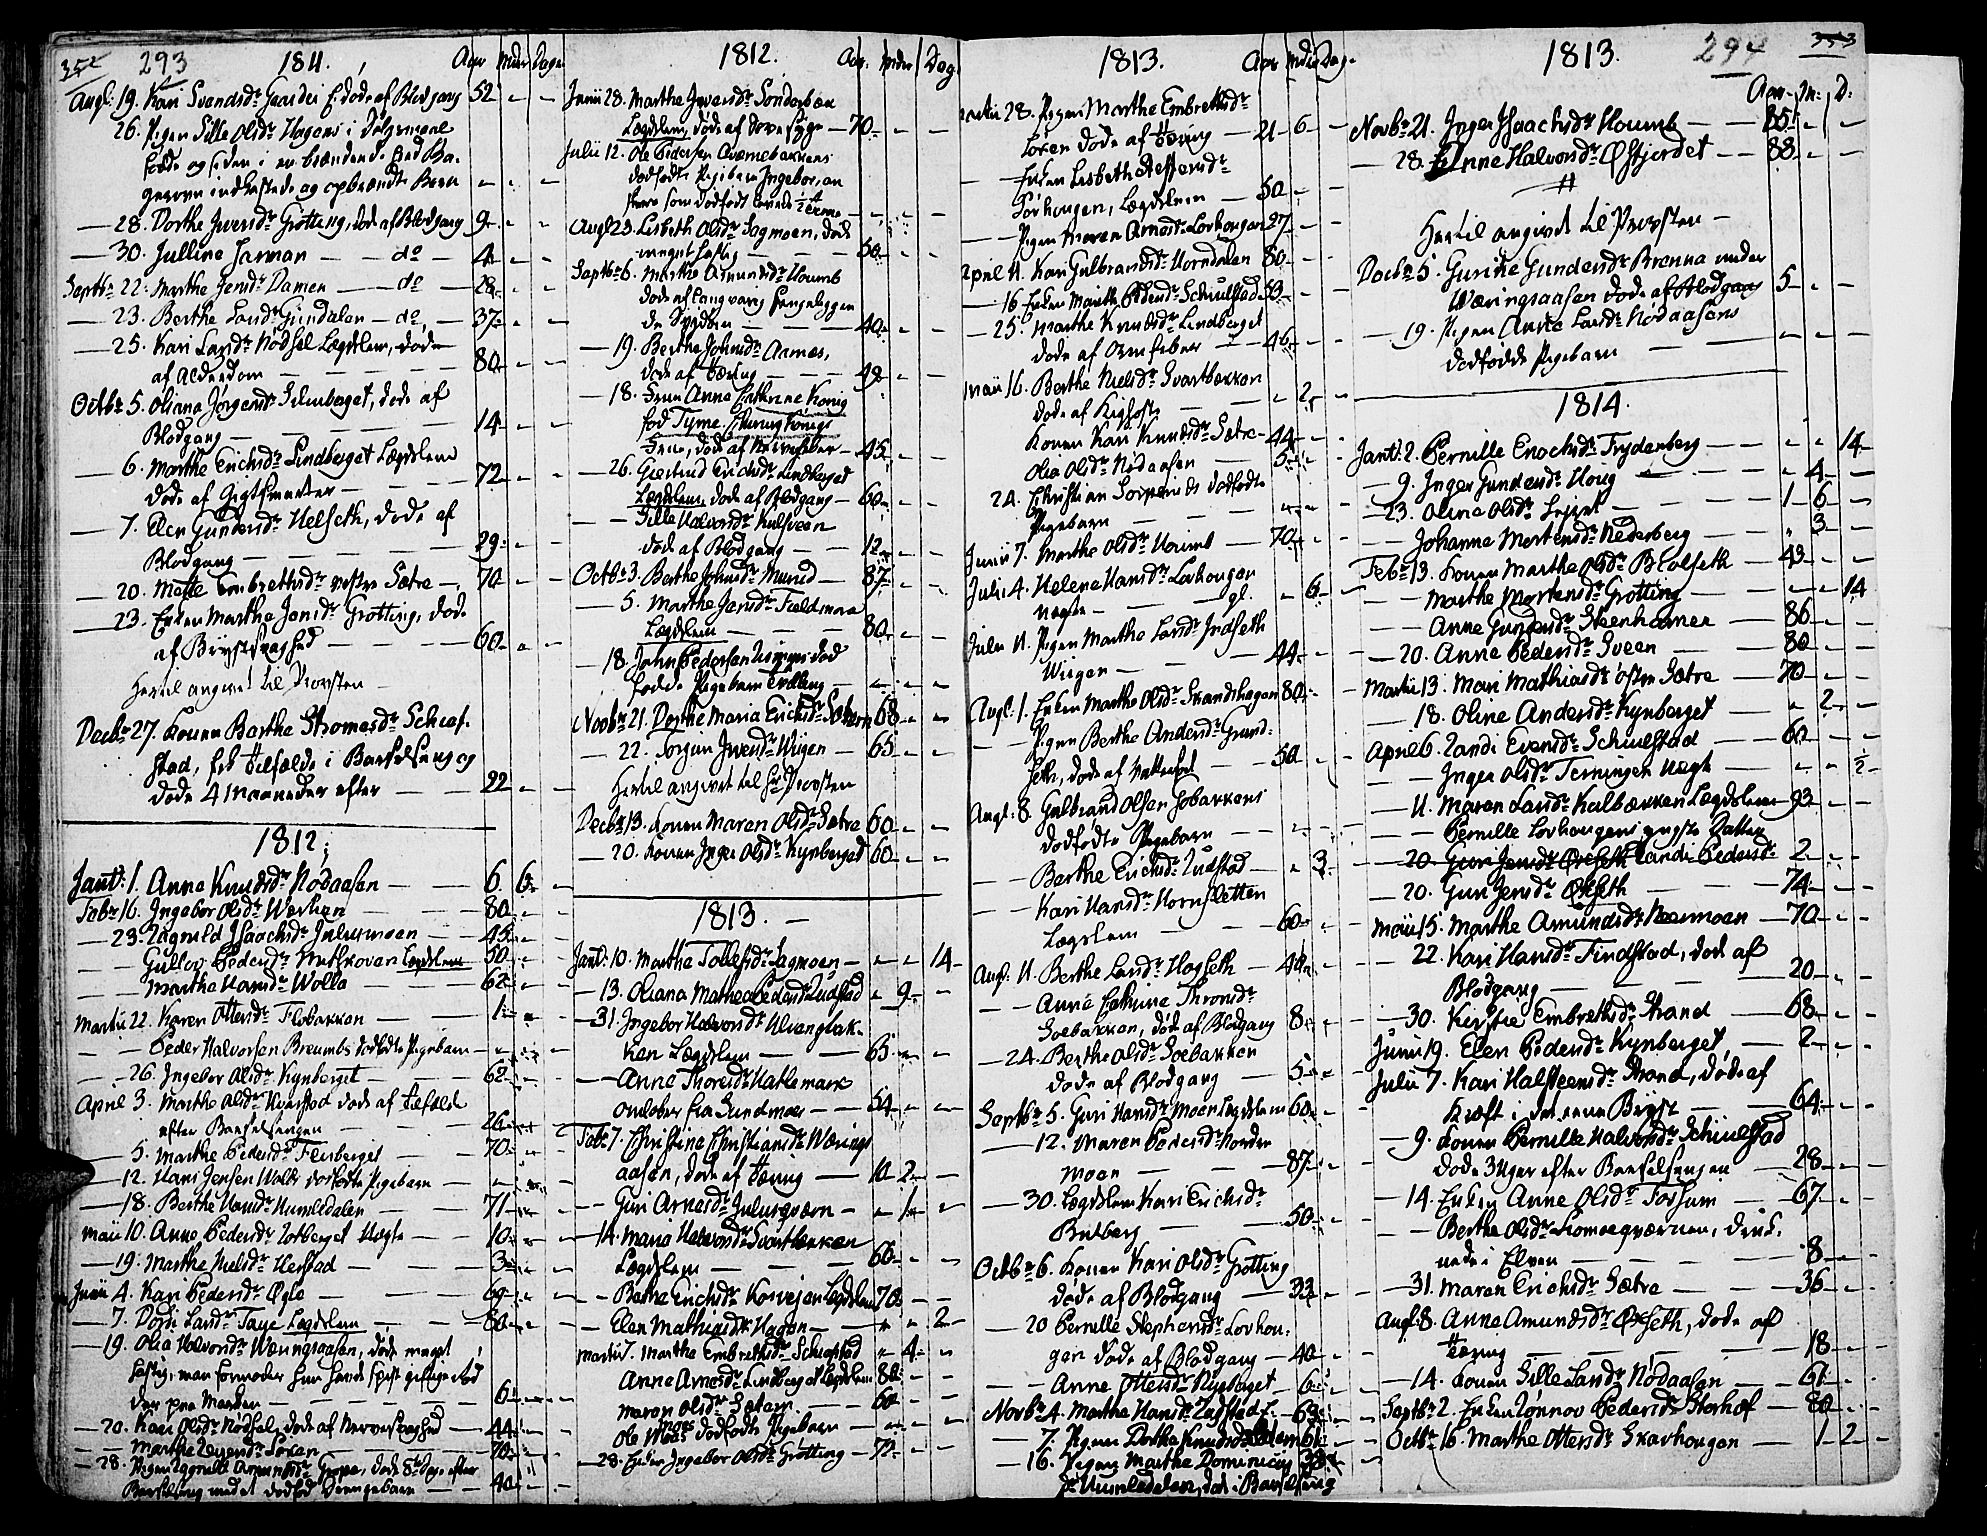 352 293 1811. Aar Mdr Dage
Augt: 19. Kari Svendsdr Gaarder E. døde af Blodgang 52 - -
26. Pigen Sille Olsdr Hagens i Dølgsmaal
fødde og siden i en brændende Bager
ovn indkastede og opbrændte Barn - - -
28. Dorthe Iversdr Grøtting, død af Blodgang 9 - -
30. Julline Jarman - do - 4 - -
Septbr 22. Marthe Jensdr Damen - do - 28 - -
23. Berthe Larsdr Gindalen - do - 37 - -
25. Kari Larsdr Nødsel Lægdslem, døde
af Alderdom - - 80 - -
Octbr 5. Oliana Jørgensdr Scheberget, døde af
Blodgang - - 14 - -
6. Marthe Erichsdr Lindberget Lægdslem
døde af Gigtsmerter - 72 - -
7. Elen Gundersdr Helseth, døde af
Blodgang - - 29 - -
20. Mette Embrethsdr vestre Sætre - 70 - -
23. Enken Marthe Jonsdr Grøtting, døde
af Brystsvaghed - 60 - -
Hertil angivet til Provsten
Decbr 27. Konen Berthe Thomesdr Schief-
stad, fik tilfælde i Barselseng og
døde 4 Maaneder efter - 22 - -
1812.
Jantr: 1. Anne Knudsdr Nødaasen - 6 6 -
Febr 16. Ingebor Olsdr Werken - 80 - -
23. Ragnild Isaachsdr Julusmoen - 45 - -
- Gullov Pedersdr Lægdslem 50 - -
- Marthe Hansdr Wolla - 62 - -
Martii 22. Karen Ottersdr Flobakken - 1 - -
- Peder Halvorsen Breumbs dødfødte Pigebarn - - -
26. Ingebor Olsdr Kynberget - 62 - -
April 3. Marthe Olsdr Kværstad døde af tilfælde
efter Barselsengen - 26 - -
5. Marthe Pedersdr Fleuberget - 70 - -
12. Hans Jensen Wolls dødfødte Pigebarn - - -
18. Berthe Hansdr Humledalen - 71 - -
Maii 10. Anne Pedersdr Lotberget Uægte - 10 - -
19. Marthe Nielsdr Herstad - 3 - -
Junii 4. Kari Pedersdr Øgle - 69 - -
7. Dordi Larsdr Taye Lægdslem - 80 - -
19. Olia Halvorsdr Wæringsaasen, døde meget
hastig, man formoder hun havde spist giftige rød
der paa Marken - 6 - -
20. Kari Olsdr Nødsel, døde af Nervesvaghed - 44 - -
- Marthe Zeyersdr Løren - 70 - -
28. Pigen Agnethe Amundsdr døde 8te Dag efter
Barselseng med et dødfød Drengebarn - 40 - -
1812. Aar Mdr Dag
Junii 28. Marthe Iversdr Sønderbæk
Lægdslem, døde af Dovesyge - 70 - -
Julii 12. Ole Pedersen Qværnebakkens
dødfødte Pigebarn Ingebor, en
større som dødfødt levede 1/2 Time - - -
Augt 23. Lisbeth Olsdr Sagmoen, døde
meget hastig - 50 - -
Septbr 6. Marthe Amundsdr Houmb
døde af langvarig Sengeliggen
de Sygdom - 40 - -
19. Berthe Johnsdr Aarnæs,
døde af Tæring - 49 - -
18. Frue Anne Cathrine König
fød Tyme, Königs
Frue, døde af Nervefeber - 45 - -
26. Giertrud Erichsdr Lindberget
Lægdslem døde af Blodgang - 60 - -
- Sille Halvorsdr Kulsveen
døde af Blodgang - 12 - -
Octbr 3. Berthe Johnsdr Morud - 87 - -
5. Marthe Jensdr Fieldmora
Lægdslem - 80 - -
18. John Pedersen død
fødde Pigebarn Tvilling - - -
Novbr 21. Dorthe Maria Erichsdr Sætern 68 - -
22. Jørgin Iversdr Wiigen - 65 - -
Hertil angivet til Hr Provsten
Decbr 13. Konen Maren Olsdr Sætre 60 - -
20. Konen Inger Olsdr Kynberget - 60 - -
1813.
Jantr: 10. Marthe Tollefsdr Sagmoen - - - 14
13. Oliana Mathea Pedersdr Rudstad - 9 -
31. Ingebor Halvorsdr Ulvangbak-
ken Lægdslem - 65 - -
- Anne Thoresdr Hattemark
omløber fra Sundmør - 54 - -
Febr 7. Christine Christiansdr Wærings
aasen, døde af Tæring - 10 2 -
- Guri Arnesdr Julusqværn - - 1 -
14. Maria Halvorsdr Svartbækken
Lægdslem - 66 - -
- Berthe Erichsdr Korsvejen Lægdslem 70 - -
- Elen Mathiasdr Hagen - - - 2
Martii 7. Marthe Embrethsdr Schiefstad - 4 -
Anne Arnesdr Lindberget Lægdslem 80 - -
Maren Olsdr Sætern - 60 - -
Ole Moes dødfødte Pigebarn - - -
28. Enken Ingebor Olsdr Grøtting - 72 - -
1813. Aar Mdr Dag
Martii 28. Pigen Marthe Embrethsdr
Løren døde af Tæring - 21 6 -
- Enken Lisbeth Steffensdr
Sørhougen, Lægdslem - 50 - -
- Pigen Maren Arnesdr Lovhougen 27 - -
April 11. Kari Gulbrandsdr Horndalen 80 - -
16. Enken Marith Pedersdr Schiulstad 53 - -
25. Marthe Knudsdr Lindberget
døde af Ormfeber - 46 - -
Maii 16. Berthe Nielsdr Svartbækken
døde af Kighoste - - 2 -
Konen Kari Knudsdr Sætre - 44 - -
Olia Olsdr Nødaasen - 5 - -
24. Christian Sørensens dødfødte
Pigebarn - - -
Junii 7. Marthe Olsdr Houmb - 70 - -
Julii 4. Helene Hansdr Lovhougen
uægte - gl. - 6 -
Julii 11. Pigen Marthe Larsdr Indseth
Wiigen - 44 - -
Augt: 1. Enken Marthe Olsdr Strandhagen 80 - -
- Pigen Berthe Andersdr Grund-
seth, døde af Vattersot - 50 - -
Augt: 8. Gulbrand Olsen Sobakkens
dødfødte Pigebarn - - -
- Berthe Erichsdr Rudstad - - 3 -
- Kari Hansdr Hornsletten
Lægdslem - 60 - -
Augt. 11. Berthe Larsdr Hagseth - 40 - -
- Anne Cathrine Thronsdr
Soebakken, død af Blodgang 8 - -
24. Berthe Olsdr Soebakken
døde af Blodgang - 5 - -
Septbr 5. Guri Hansdr Moen Lægdslem 60 - -
12. Maren Pedersdr Nordre
moen - 87 - -
30. Lægdslem Kari Erichsdr
Bulberg - 50 - -
Octbr 6. Konen Kari Olsdr Grøtting
døde af Blodgang - 33 - -
20 Pernille Stephensdr Lovhou-
gen døde af Blodgang - 40 - -
- Anne Ottersdr Nyberget - 6 - -
Novbr 4. Marthe Hansdr Rudstad E. - 63 - -
7. Pigen Dorthe Knudsdr 61 - -
16. Pigen Marthe Dominicus 38 - -
dr Humledalen, død i Barselseng
1813. 294 353
Aar M: D:
Novbr 21. Inger Isaachsdr Houmb - 85 - -
28. Anne Halvorsdr Østjordet - 88 - -
Hertil angivet til Provsten -
Decbr 5. Gurine Gundersdr Brenna under
Wæringsaasen døde af Blodgang 5 - -
19. Pigen Anne Larsdr Nødaasens
dødfødde Pigebarn - - -
1814.
Jantr: 2. Pernille Enochsdr Frydenberg - - - 14
9. Inger Gundersdr Houg - - 4 -
23. Oline Olsdr Lejret - 1 6 -
- Johanne Mortensdr Nederberg - - 3 -
Febr 13. Konen Marthe Olsdr Blolseth - 43 - -
- Marthe Mortensdr Grøtting - - - 14
- Anne Gundersdr Steenhamer - 86 - -
20. Anne Pedersdr Sveen - 80 - -
Martii 13. Mari Mathiasdr østre Sætre - 70 - -
18. Oline Andersdr Kynberget - - 2 -
April 6. Randi Evensdr Schiulstad - 60 - -
- Inger Olsdr Terningen Uægt - - - 1/2
11. Maren Larsdr Kulbækken Lægdslem 93 - -
- Pernille Lovhougens yngste Datter
20. Guri Jensdr Ørseth Randi Pedersdr 2 - -
20. Guri Jensdr Ørseth - 74 - -
Maii 15. Marthe Amundsdr Næsmoen - 70 - -
22. Kari Hansdr Findstad, døde af
Blodgang - 20 - -
30. Kirstie Embrethsdr Strand - 68 - -
Junii 19. Elen Pedersdr Kynberget - 2 - -
Julii 7. Kari Halsteensdr Strand, døde af
Kræft i det eene Bryst - 64 - -
9. Konen Pernille Halvorsdr Schiulstad
døde 3 Uger efter Barselsengen - 28 - -
14. Enken Anne Olsdr Forsum - 67 - -
- Berthe Olsdr Lomoeqværnen, druk-
nede i Elven - 8 - -
31. Maren Erichsdr Sætre - 36 - -
Augt: 8. Anne Amundsdr Ørseth, døde af
Tæring - 18 - -
14. Konen Sille Larsdr Nødaasen - 61 - -
Septbr 2. Enken Rønnov Pedersdr Storhof - 80 - -
Octbr 16. Marthe Ottersdr Skavhougen - 1 2 -